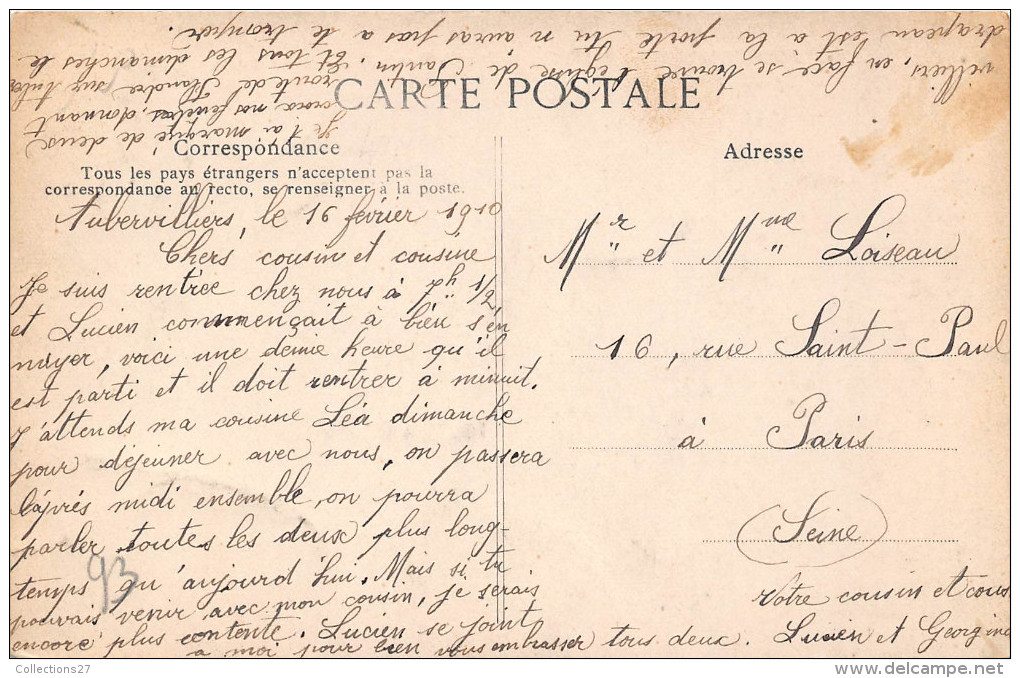 CARTE POSTALE
Correspondance
Tous les pays étrangers n'acceptent pas la
correspondance au recto, se renseigner à la poste.
Adresse
Aubervilliers, le 16 février 1910
Chers cousin et cousine
Je suis rentrée chez nous à 7h 1/2
et Lucien commençait à bien s'en
nuyer, voici une demie heure qu'il
est parti et il doit rentrer à minuit.
J'attends ma cousine Léa dimanche
pour déjeuner avec nous, on passera
l'après midi ensemble, on pourra
parler toutes les deux plus long-
temps qu'aujourd'hui. Mais si tu
pouvais venir avec mon cousin, je serais
encore plus contente. Lucien se joint
à moi pour bien vous embrasser tous deux.
Votre cousin et cous
Lucien et Georgina
Mr et Mme Loiseau
16, rue Saint-Paul
à Paris
(Seine)
Je t'ai marqué de deux
croix nos fenêtres, donnant
route de Flandre sur Auber
villiers, en face se trouve l'église de Pantin. Et tous les dimanches le
drapeau est à la porte tu n'auras pas a te tromper.
93
Collections27
delcampe.net